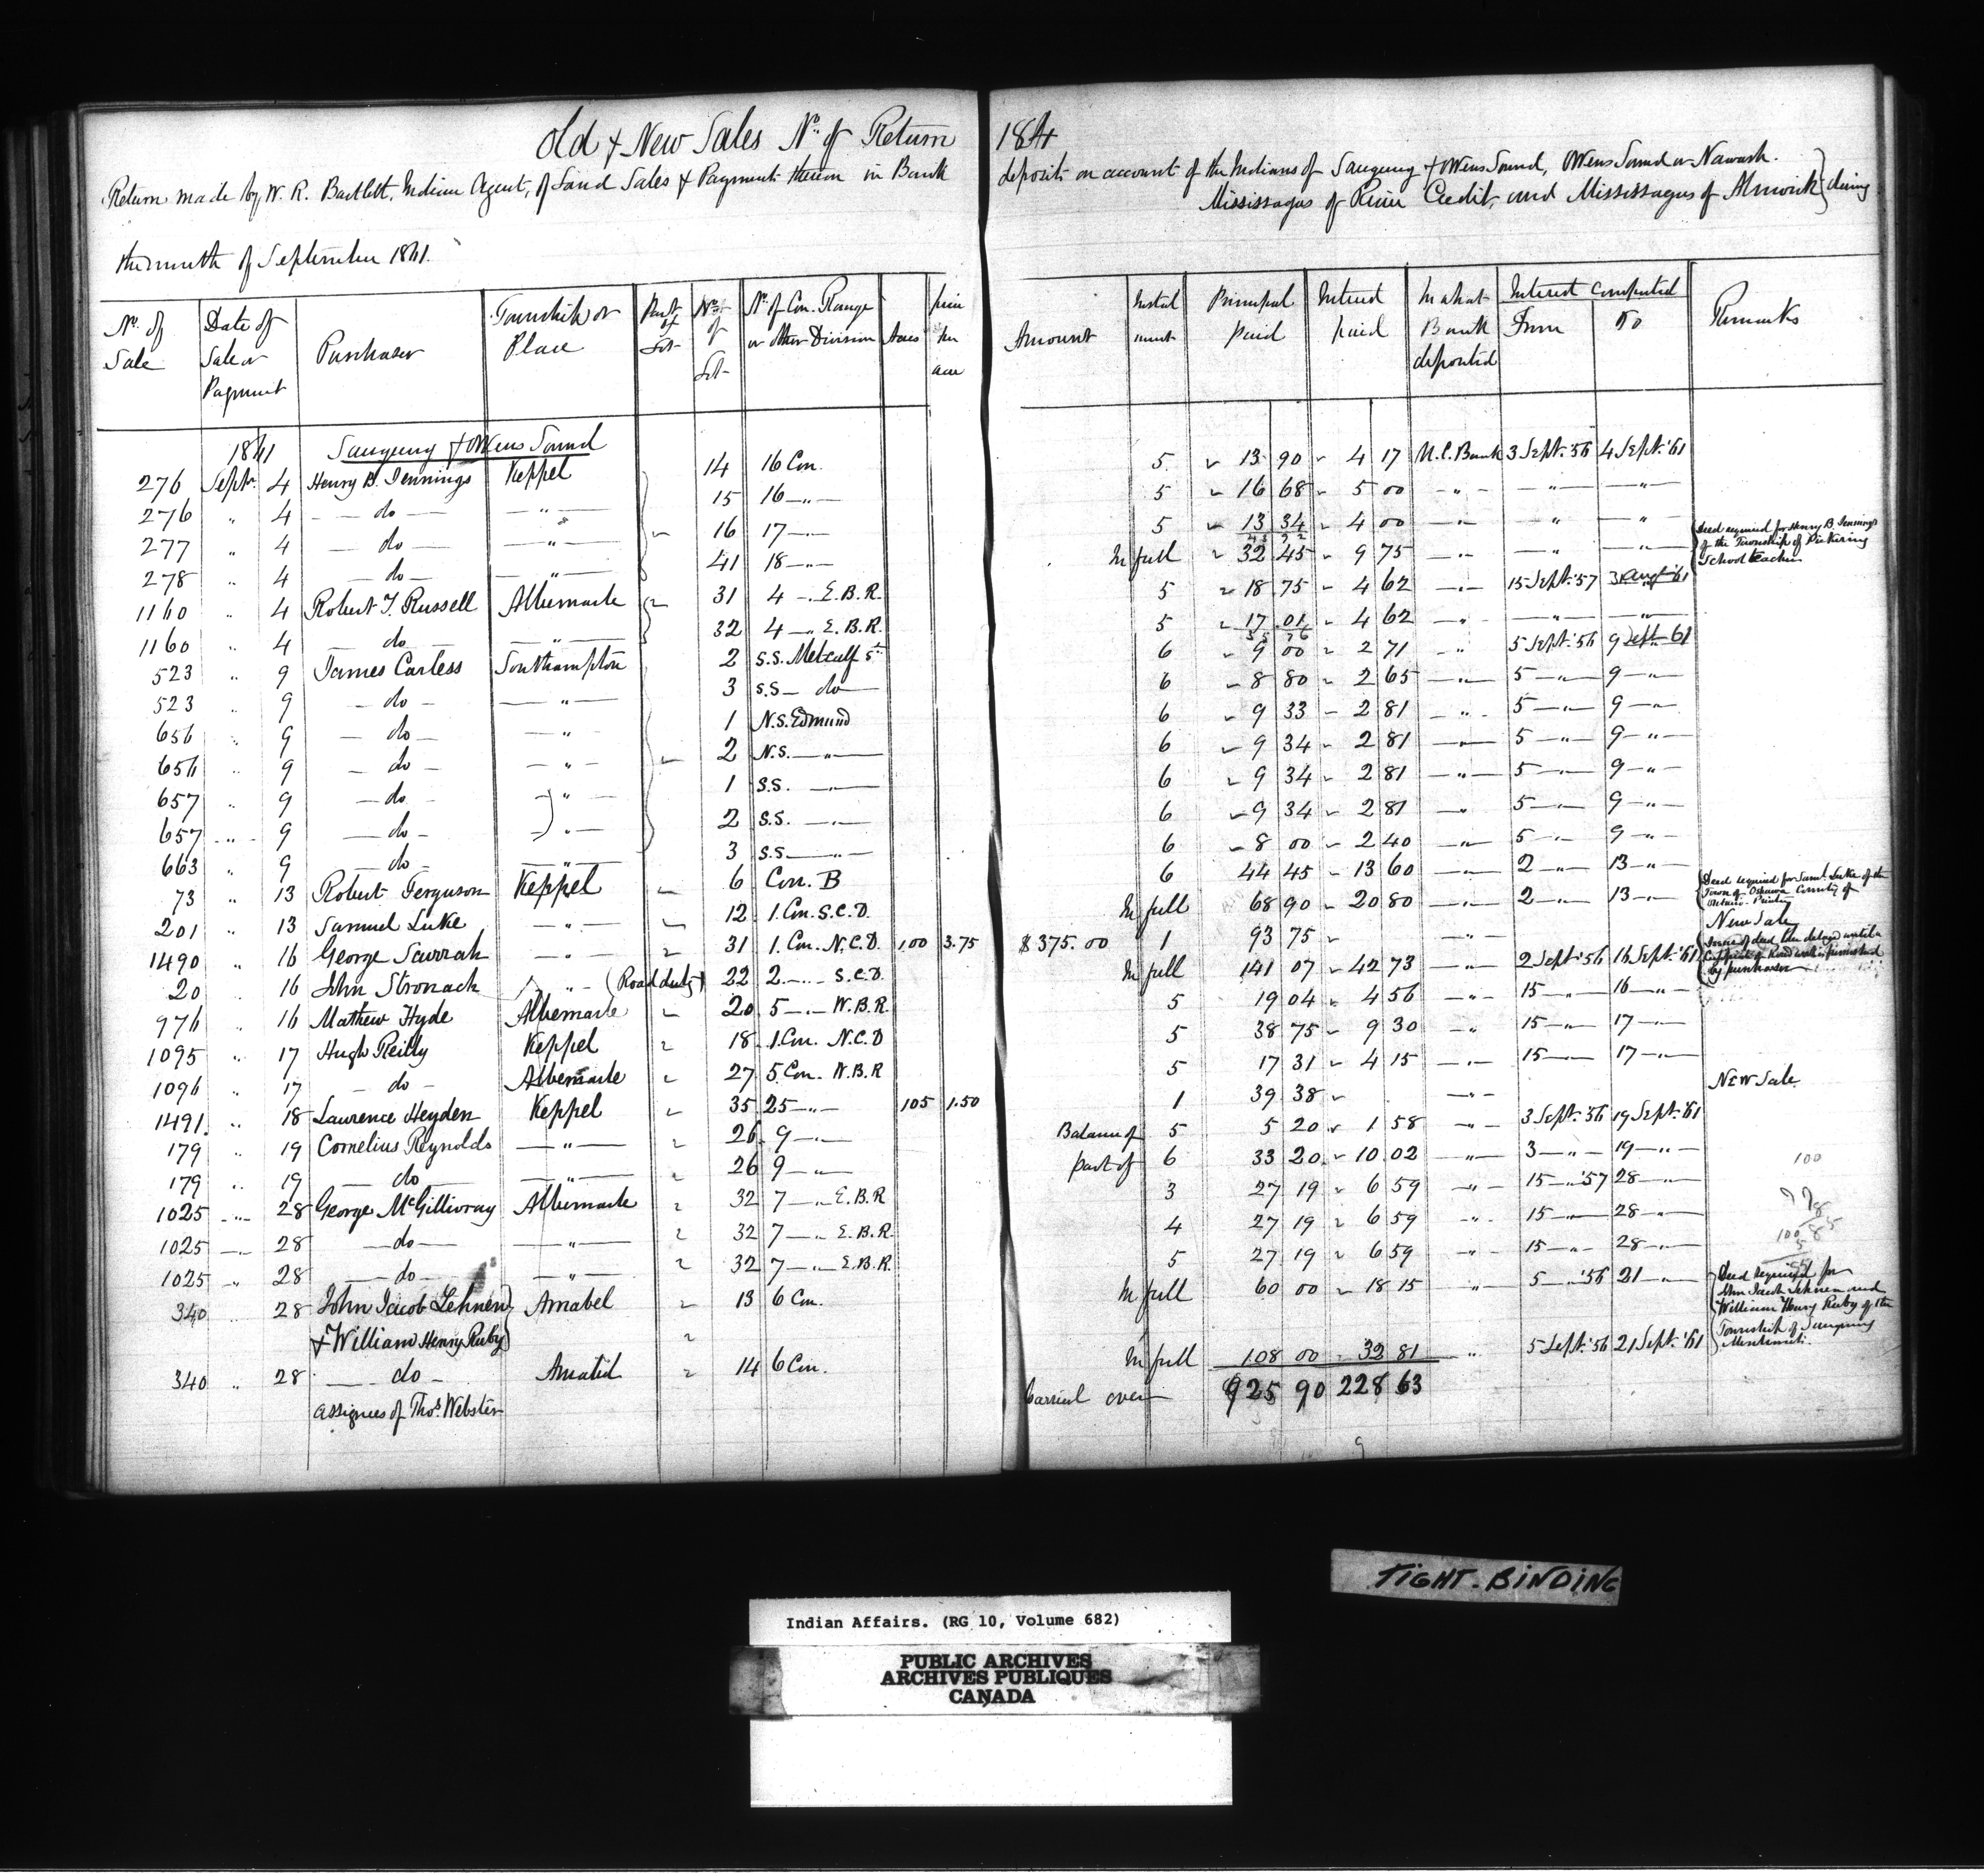 Old & New Sales No. of Return 184
Return made by W. R. Bartlett, Indian Agent, of Land Sales & Payments thereon in Bank deposits on account of the Indians of Saugeeng & Owens Sound, Owens Sound or Nawash.
Mississagas of River Credit, and Mississagas of Alnwick } during
the month of September 1861.
No. of Sale | Date of Sale or Payment | Purchaser | Township or Place | Part of Lot | No. of Lot | No. of Con. Range or other Division | Acres | price per acre | Amount | Instalment | Principal paid | Interest paid | In what Bank deposited | Interest Computed From | To | Remarks
1861 Saugeeng & Owens Sound
276 Septr. 4 Henry B. Jennings Keppel 14 16 Con. 5 13 90 4 17 U.C. Bank 3 Sept. '56 4 Sept. '61
276 " 4 — do — — " — 15 16 — " — 5 16 68 5 00 — " — — " — — " —
277 " 4 — do — — " — 16 17 — " — 5 13 34 4 00 — " — — " — — " —
278 " 4 — do — — " — 41 18 — " — In full 32 45 9 75 — " — — " — — " — Deed required for Henry B Jennings of the Township of Pickering School teacher
1160 " 4 Robert T. Russell Albemarle 31 4 — " E.B.R. 5 18 75 4 62 — " — 15 Sept. '57 3 Augt '61
1160 " 4 — do — — " — 32 4 — " E.B.R. 5 17 01 4 62 — " — — " — — " —
523 " 9 James Carless Southampton 2 S.S. Metcalf St. 6 9 00 2 71 " 5 Sept. '56 9 Sept 61
523 " 9 — do — — " — 3 S.S — do — 6 8 80 2 65 — " — 5 — " — 9 — " —
656 " 9 — do — — " — 1 N.S. Edmund 6 9 33 2 81 — " — 5 — " — 9 — " —
656 " 9 — do — — " — 2 N.S. — " — 6 9 34 2 81 — " — 5 — " — 9 — " —
657 " 9 — do — — " — 1 S.S. — " — 6 9 34 2 81 — " — 5 — " — 9 — " —
657 " 9 — do — — " — 2 S.S. — " — 6 9 34 2 81 — " — 5 — " — 9 — " —
663 " 9 — do — — " — 3 S.S — " — 6 8 00 2 40 — " — 5 — " — 9 — " —
73 " 13 Robert Ferguson Keppel 6 Con. B 6 44 45 13 60 — " — 2 — " — 13 — " —
201 " 13 Samuel Luke — " — 12 1. Con. S.C.D. In full 68 90 20 80 — " — 2 — " — 13 — " — Deed required for Saml. Luke of the Town of Oshawa County of Ontario. Printer
1490 " 16 George Savrrah — " — 31 1. Con. N.C.D. 100 3.75 $375.00 1 93 75 — " — New Sale
20 " 16 John Stronach — " — (Road duty) 22 2 — " — S.C.D. In full 141 07 42 73 — " — 2 Sept. '56 16 Sept. '61 Issue of deed to be delayed until a Certificate of Road work is furnished by purchaser
976 " 16 Mathew Hyde Albemarle 20 5 — " — W.B.R. 5 19 04 4 56 — " — 15 — " — 16 — " —
1095 " 17 Hugh Reilly Keppel 18 1. Con. N.C.D 5 38 75 9 30 — " — 15 — " — 17 — " —
1096 " 17 — do — Albemarle 27 5 Con. W.B.R 5 17 31 4 15 — " — 15 — " — 17 — " —
1491. " 18 Laurence Heyden Keppel 35 25 — " — 105 1.50 1 39 38 — " — New Sale
179 " 19 Cornelius Reynolds — " — 26 9 — " — Balance of 5 5 20 1 58 — " — 3 Sept. '56 19 Sept. '61
179 " 19 — do — — " — 26 9 — " — part of 6 33 20 10 02 — " — 3 — " — 19 — " —
1025 " 28 George McGillivray Albemarle 32 7 — " E.B.R 3 27 19 6 59 — " — 15 — " '57 28 — " — 100
1025 " 28 — do — — " — 32 7 — " E.B.R. 4 27 19 6 59 — " — 15 — " — 28 — " —
1025 " 28 — do — — " — 32 7 — " — E.B.R. 5 27 19 6 59 — " — 15 — " — 28 — " —
340 " 28 John Jacob Lehnen Amabel 13 6 Con. In full 60 00 18 15 " 5 — " '56 21 — " — Deed required for John Jacob Lehnen and William Henry Ruby of the Township of Saugeeng
& William Henry Ruby
340 " 28 — do — Amabel 14 6 Con. In full 108 00 32 81 " 5 Sept. '56 21 Sept. '61
Assignees of Thos. Webster
Carried over 925 90 228 63
TIGHT. BINDING
Indian Affairs. (RG 10, Volume 682)
PUBLIC ARCHIVES
ARCHIVES PUBLIQUES
CANADA